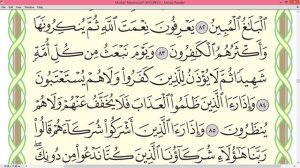 ٱلْبَلَٰغُ ٱلْمُبِينُ ٨٢ يَعْرِفُونَ نِعْمَتَ ٱللَّهِ ثُمَّ يُنكِرُونَهَا
وَأَكْثَرُهُمُ ٱلْكَٰفِرُونَ ٨٣ وَيَوْمَ نَبْعَثُ مِن كُلِّ أُمَّةٍ
شَهِيدًا ثُمَّ لَا يُؤْذَنُ لِلَّذِينَ كَفَرُوا۟ وَلَا هُمْ يُسْتَعْتَبُونَ
٨٤ وَإِذَا رَءَا ٱلَّذِينَ ظَلَمُوا۟ ٱلْعَذَابَ فَلَا يُخَفَّفُ عَنْهُمْ وَلَا هُمْ
يُنظَرُونَ ٨٥ وَإِذَا رَءَا ٱلَّذِينَ أَشْرَكُوا۟ شُرَكَآءَهُمْ قَالُوا۟
رَبَّنَا هَٰٓؤُلَآءِ شُرَكَآؤُنَا ٱلَّذِينَ كُنَّا نَدْعُوا۟ مِن دُونِكَ